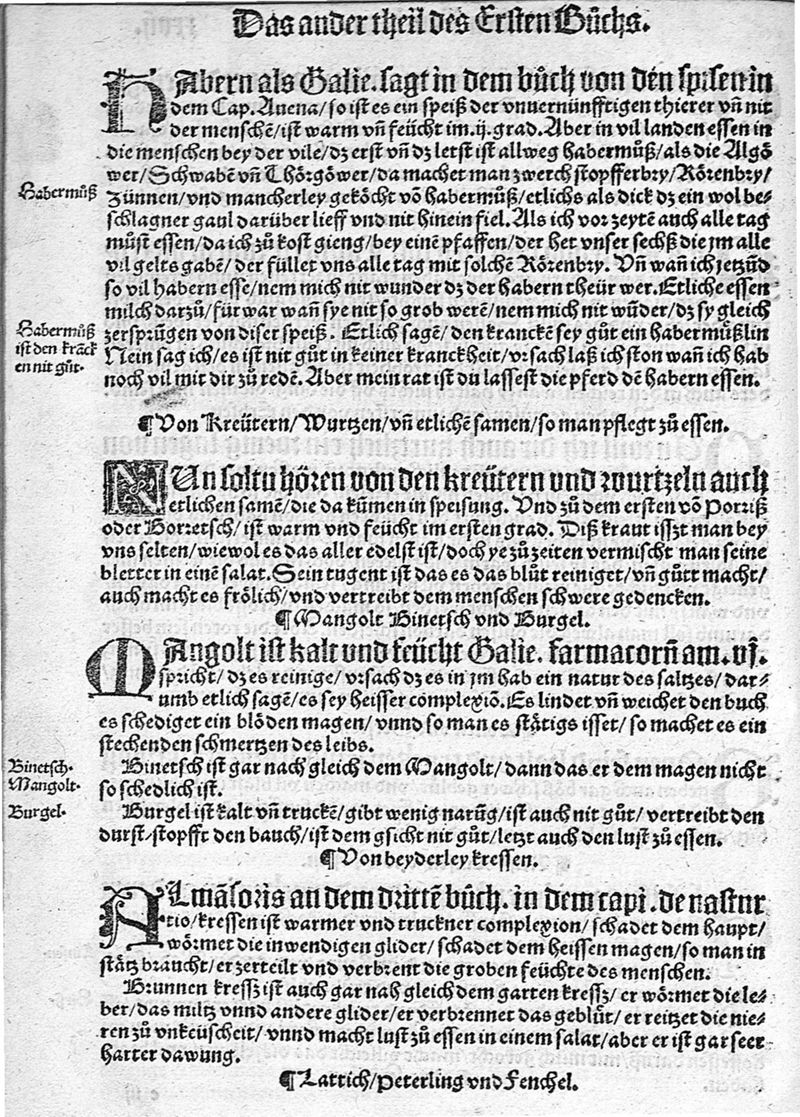 Das ander theil des Ersten Bůchs.
HAbern als Galie. sagt in dem bůch von den spisen in
dem Cap. Auena/ so ist es ein speiß der vnuernünfftigen thierer vñ nit
der menschẽ/ ist warm vñ feücht im .ij. grad. Aber in vil landen essen in
die menschen bey der vile/ dz erst vñ dz letst ist allweg habermůß/ als die Algö
wer/ Schwabẽ vñ Thörgöwer/ da machet man zwerch stopfferbry/ Rörenbry/
Habermůß
Zünnen/ vnd mancherley geköcht võ habermůß/ etlichs als dick dz ein wol be⸗
schlagner gaul darüber lieff vnd nit hinein fiel. Als ich vor zeytẽ auch alle tag
můst essen/ da ich zů kost gieng/ bey einẽ pfaffen/ der het vnser sechß die jm alle
vil gelts gabẽ/ der füllet vns alle tag mit solchẽ Rörenbry. Vñ wañ ich jetzũd
so vil habern esse/ nem mich nit wunder dz der habern theür wer. Etliche essen
milch darzů/ für war wañ sye nit so grob werẽ/ nem mich nit wũder/ dz sy gleich
Habermůß
ist den krãck
en nit gůt.
zersprũgen von diser speiß. Etlich sagẽ/ den kranckẽ sey gůt ein habermůßlin
Nein sag ich/ es ist nit gůt in keiner kranckheit/ vrsach laß ich ston wañ ich hab
noch vil mit dir zů redẽ. Aber mein rat ist du lassest die pferd dẽ habern essen.
¶ Von Kreütern/ Wurtzen/ vñ etlichẽ samen/ so man pflegt zů essen.
NUn soltu hören von den kreütern vnd wurtzeln auch
etlichen samẽ/ die da kũmen in speisung. Vnd zů dem ersten võ Porriß
oder Borretsch/ ist warm vnd feücht im ersten grad. Diß kraut isszt man bey
vns selten/ wiewol es das aller edelst ist/ doch ye zůzeiten vermischt man seine
bletter in einẽ salat. Sein tugent ist das es das blůt reiniget/ vñ gůtt macht/
auch macht es frölich/ vnd vertreibt dem menschen schwere gedencken.
¶ Mangolt Binetsch vnd Burgel.
MAngolt ist kalt vnd feücht Galie. farmacorũ am .vj.
spricht/ dz es reinige/ vrsach dz es in jm hab ein natur des saltzes/ dar⸗
umb etlich sagẽ/ es sey heisser complexiõ. Es lindet vñ weichet den buch
es schediget ein blöden magen/ vnnd so man es stätigs isset/ so machet es ein
stechenden schmertzen des leibs.
Binetsch.
Mangolt.
Burgel.
Binetsch ist gar nach gleich dem Mangolt/ dann das er dem magen nicht
so schedlich ist.
Burgel ist kalt vñ truckẽ/ gibt wenig narũg/ ist auch nit gůt/ vertreibt den
durst/ stopfft den bauch/ ist dem gsicht nit gůt/ letzt auch den lust zů essen.
¶ Von beyderley kressen.
ALmãsoris an dem drittẽ bůch. in dem capi. de nastur
tio/ kressen ist warmer vnd truckner complexion/ schadet dem haupt/
wörmet die inwendigen glider/ schadet dem heissen magen/ so man in
stätz braucht/ er zerteilt vnd verbrent die groben feüchte des menschen.
Brunnen kressz ist auch gar nah gleich dem garten kressz/ er wörmet die le⸗
ber/ das miltz vnnd andere glider/ er verbrennet das geblüt/ er reitzet die nie⸗
ren zů vnkeüscheit/ vnnd macht lust zů essen in einem salat/ aber er ist gar seer
harter dawung.
¶ Lattich/ Peterling vnd Fenchel.